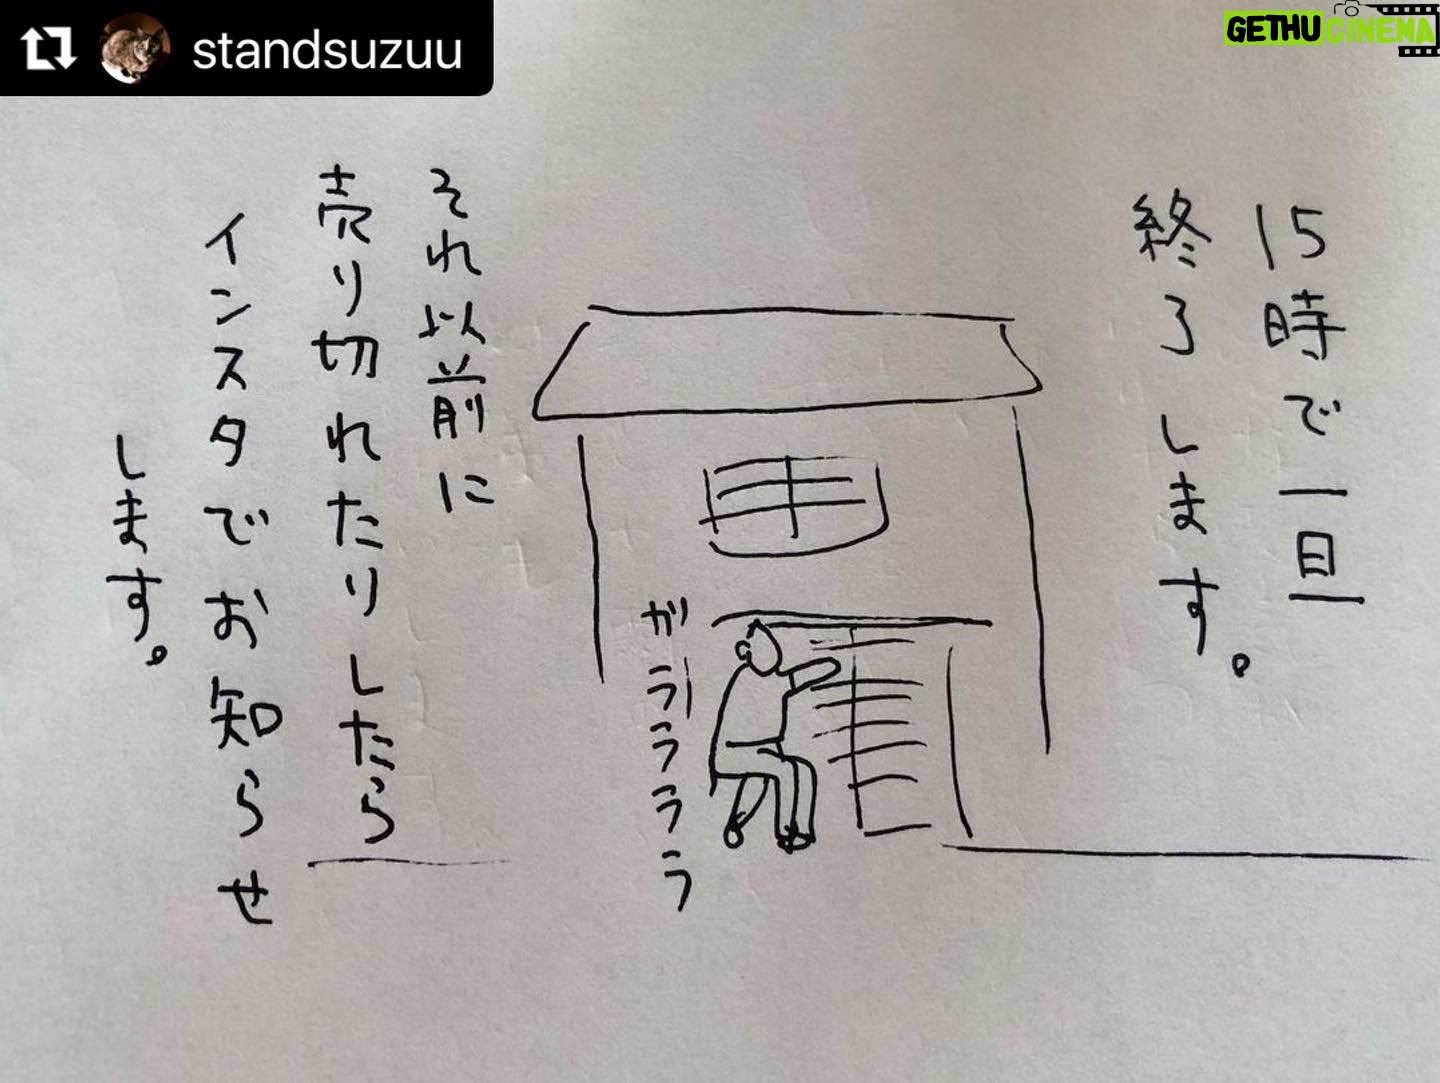 standsuzuu
GETHU CINEMA
15時で一旦
終了します。
ガララララ
それ以前に
売り切れたりしたら
インスタでお知らせ
します。